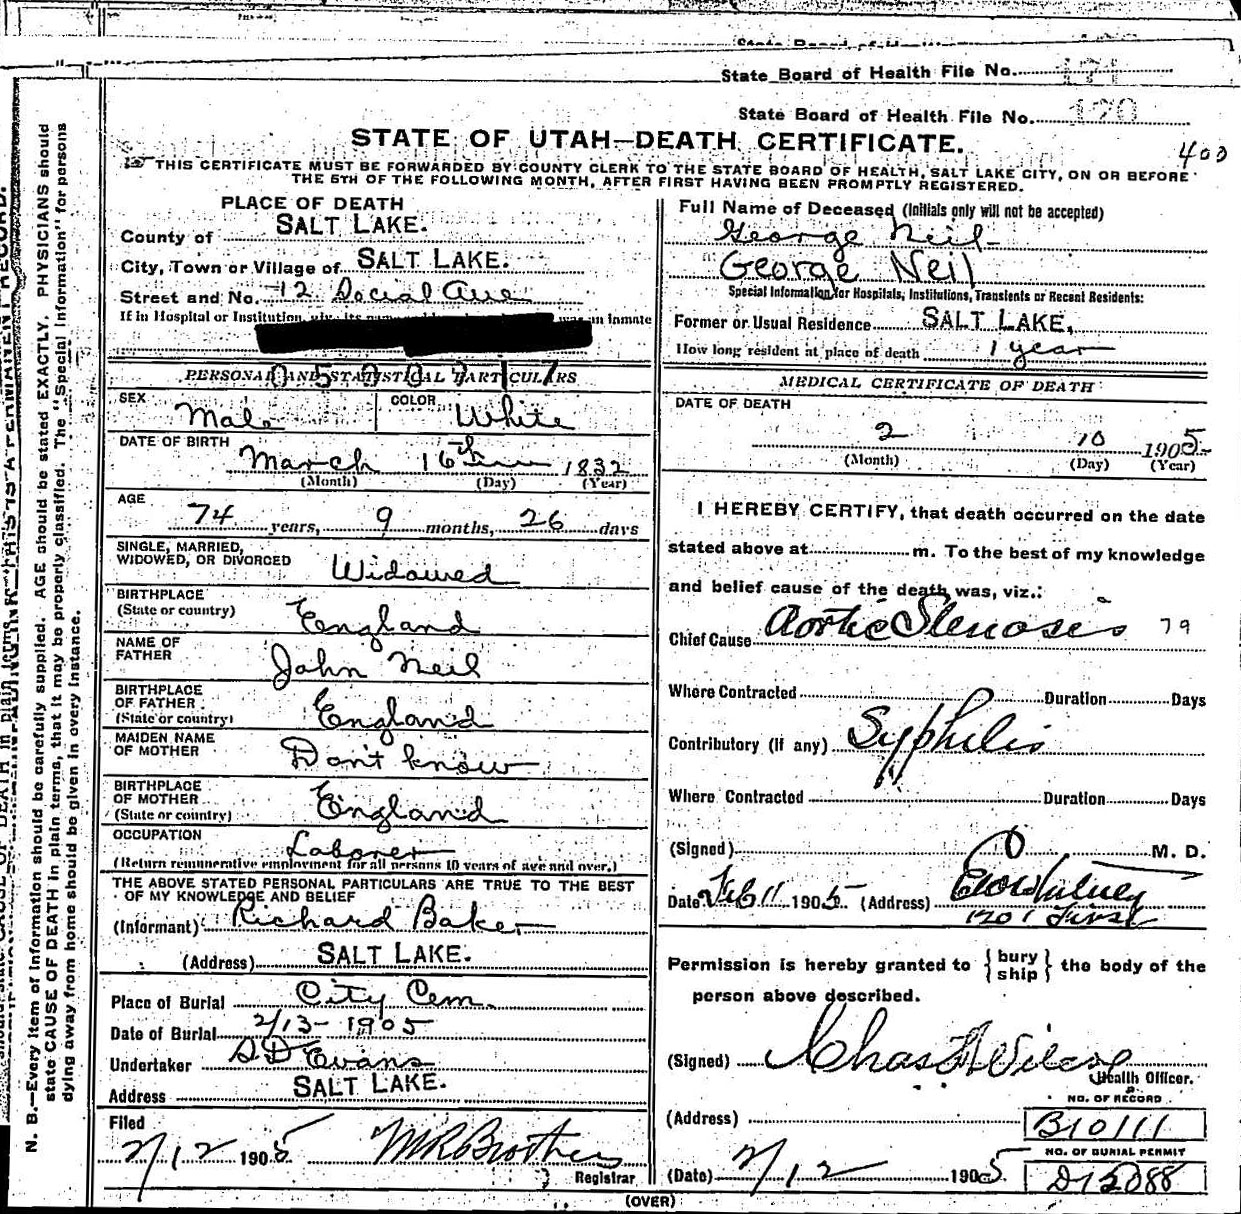 State Board of Health File No. 171
State Board of Health File No. 170
STATE OF UTAH—DEATH CERTIFICATE.
400
THIS CERTIFICATE MUST BE FORWARDED BY COUNTY CLERK TO THE STATE BOARD OF HEALTH, SALT LAKE CITY, ON OR BEFORE
THE 5TH OF THE FOLLOWING MONTH, AFTER FIRST HAVING BEEN PROMPTLY REGISTERED.
PLACE OF DEATH
County of SALT LAKE.
City, Town or Village of SALT LAKE.
Street and No. 12 Social Ave
If in Hospital or Institution, was an inmate
PERSONAL AND STATISTICAL PARTICULARS
SEX Male COLOR White
DATE OF BIRTH
March 16th 1832
(Month) (Day) (Year)
AGE
74 years, 9 months, 26 days
SINGLE, MARRIED,
WIDOWED, OR DIVORCED Widowed
BIRTHPLACE
(State or country) England
NAME OF
FATHER John Neil
BIRTHPLACE
OF FATHER
(State or country) England
MAIDEN NAME
OF MOTHER Don't know
BIRTHPLACE
OF MOTHER
(State or country) England
OCCUPATION Laborer
(Return remunerative employment for all persons 10 years of age and over.)
THE ABOVE STATED PERSONAL PARTICULARS ARE TRUE TO THE BEST
OF MY KNOWLEDGE AND BELIEF
(Informant) Richard Baker
(Address) SALT LAKE.
Place of Burial City Cem.
Date of Burial 2/13-1905
Undertaker S D Evans
Address SALT LAKE.
Filed
2/12 1905 Registrar
Full Name of Deceased (Initials only will not be accepted)
George Neil
George Neil
Special Information for Hospitals, Institutions, Transients or Recent Residents:
Former or Usual Residence SALT LAKE,
How long resident at place of death 1 year
MEDICAL CERTIFICATE OF DEATH
DATE OF DEATH
2 10 1905
(Month) (Day) (Year)
I HEREBY CERTIFY, that death occurred on the date
stated above at m. To the best of my knowledge
and belief cause of the death was, viz.:
Chief Cause Aortic Stenosis 79
Where Contracted Duration Days
Contributory (if any) Syphilis
Where Contracted Duration Days
(Signed) M. D.
Date Feb 11 1905 (Address) 1201 First
Permission is hereby granted to {bury
ship} the body of the
person above described.
(Signed) Chas
Health Officer.
NO. OF RECORD
(Address) B10111
NO. OF BURIAL PERMIT
(Date) 2/12 1905 D12088
(OVER)
N. B.—Every item of information should be carefully supplied. AGE should be stated EXACTLY. PHYSICIANS should
state CAUSE OF DEATH in plain terms, that it may be properly classified. The "Special Information" for persons
dying away from home should be given in every instance.